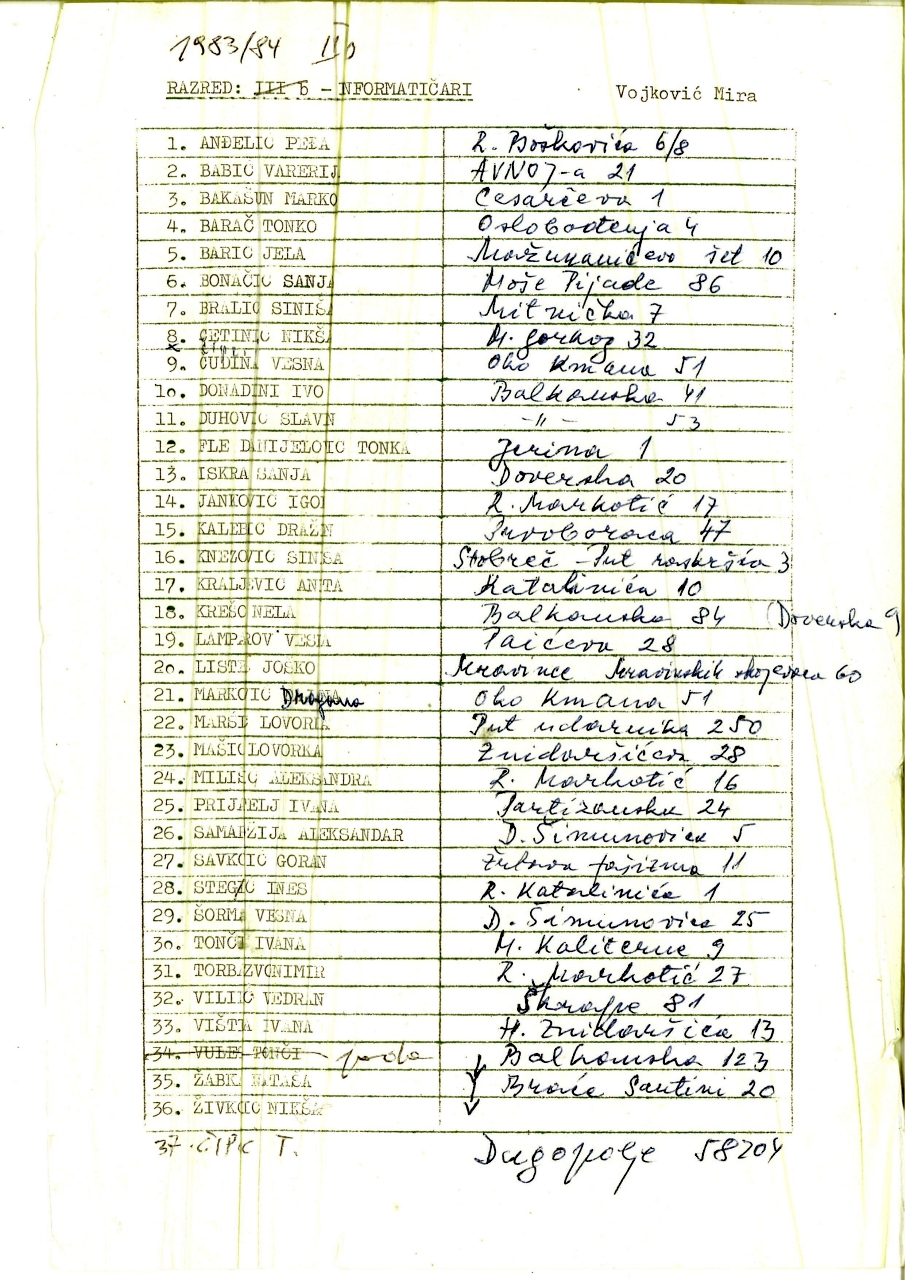 1983/84 II
RAZRED: III b - NFORMATIČARI Vojković Mira
1. ANĐELIĆ PEŠA R. Boškovića 6/8
2. BABIĆ VARERIJ AVNOJ-a 21
3. BAKAŠUN MARKO Cesarčeva 1
4. BARAČ TONKO Oslobođenja 4
5. BARIĆ JELA Mažuranićevo šet 10
6. BONAČIĆ SANJA Moše Pijade 86
7. BRALIĆ SINIŠA Mitnička 7
8. CETINIĆ NIKŠA M. gorkog 32
9. ČUDINA VESNA Oko Kmana 51
1o. DONADINI IVO Balkanska 41
11. DUHOVIĆ SLAVN -"- 53
12. FLE DANIJELOVIĆ TONKA Jerina 1
13. ISKRA SANJA Doverska 20
14. JANKOVIĆ IGO R. Markotić 17
15. KALEBIĆ DRAŽN Prvoboraca 47
16. KNEZOVIĆ SINIŠA Stobreč - Put raskršća 3
17. KRALJEVIĆ ANITA Katalinića 10
18. KREŠO NELA Balkanska 84 (Doverska 9
19. LAMPAROV VESNA Paićeva 28
2o. LISTE JOŠKO Mravince Mravinskih skojevaca 60
21. MARKOVIĆ Dragana Oko Kmana 51
22. MARŠI LOVORKA Put udarnika 250
23. MAŠIĆ LOVORKA Žnidaršićeva 28
24. MILIŠIĆ ALEKSANDRA R. Markotić 16
25. PRIJATELJ IVANA Partizanska 24
26. SAMARŽIJA ALEKSANDAR D. Šimunovića 5
27. SAVKOVIĆ GORAN Žrtava fašizma 11
28. STEGIĆ INES R. Katalinića 1
29. ŠORMA VESNA D. Šimunovića 25
3o. TONČI IVANA M. Kaliterne 9
31. TORBA ZVONIMIR R. Markotić 27
32. VILIĆ VEDRAN Škrape 81
33. VIŠTA IVANA H. Žnidaršića 13
34. VULES TONČI Balkanska 123
35. ŽABK NATAŠA Braće Santini 20
36. ŽIVKOVIĆ NIKŠA
37. ČIPIĆ T. Dugopolje 58204